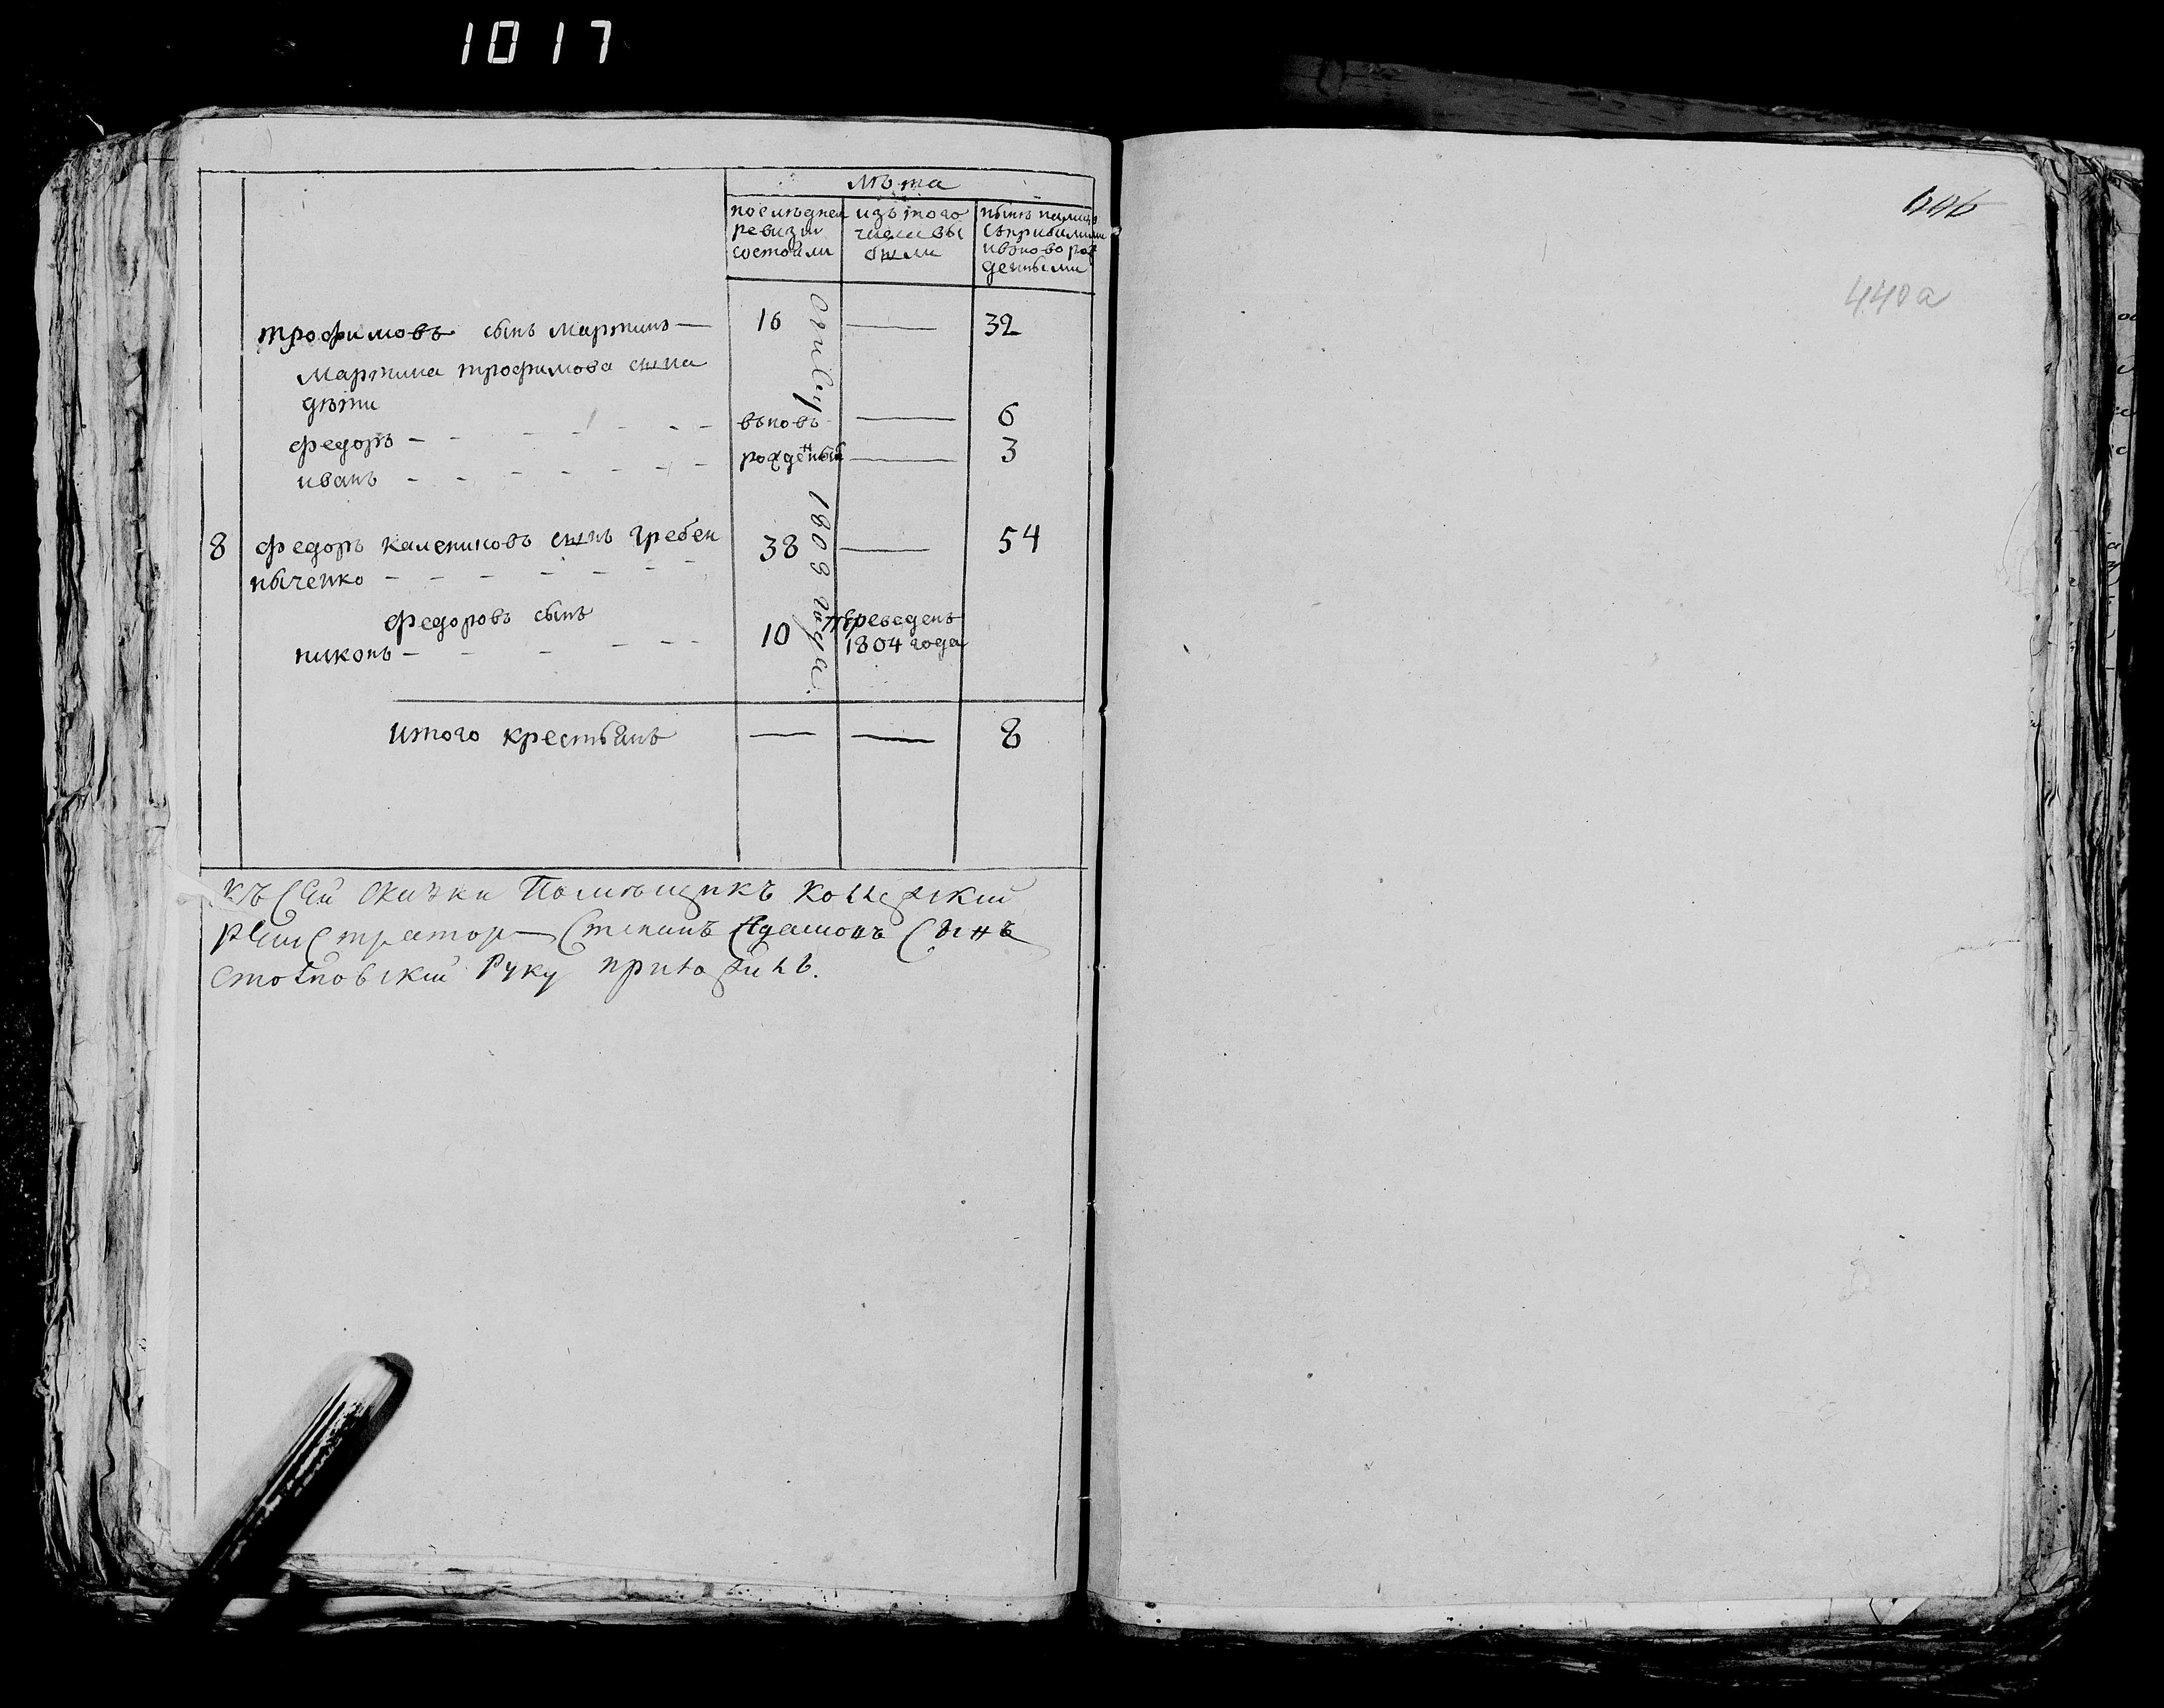 1017
лѣта
последнея ревизии состояли
изъ того числа выбыли
нынѣ налицо съприбилими ивъново рож денными
трофимовъ сынъ Мартинъ — 16 — 32
Мартина трофимова сына
дѣти
федоръ въновъ — 6
иванъ рожденный — 3
8 федоръ калениковъ сынъ гребен
ныченко 38 — 54
федоровъ сынъ
никонъ 10 переведенъ 1804 года
1808 года
итого крестьянъ — — 8
Къ сей скаски Помѣщикъ колежский
регистраторъ Степанъ Адамовъ Сынъ
руку приложилъ.
440а